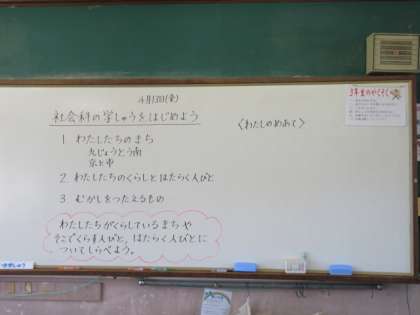 4月13日(金)
社会科の学しゅうをはじめよう
〈わたしのめあて〉
1 わたしたちのまち
九じょうとう南
京都市
2 わたしたちのくらしとはたらく人びと
3 むかしをつたえるもの
わたしたちがくらしているまちや
そこでくらす人びと、はたらく人びとに
ついてしらべよう。
3年生のやくそく